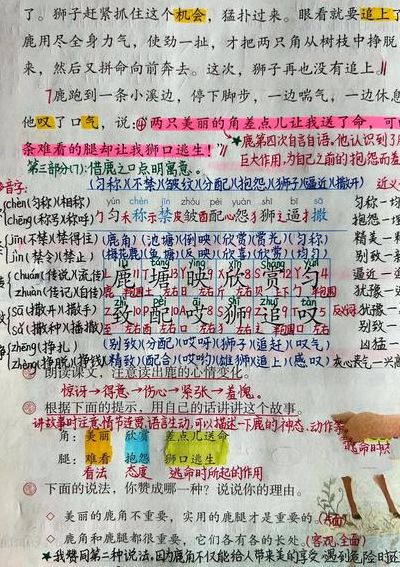 了。狮子赶紧抓住这个机会，猛扑过来。眼看就要追上了
鹿用尽全身力气，使劲一扯，才把两只角从树枝中挣脱
来，然后又拼命向前奔去。这次，狮子再也没有追上。
7鹿跑到一条小溪边，停下脚步，一边喘气，一边休息
他叹了口气，说：“两只美丽的角差点儿让我送了命，可
条难看的腿却让我狮口逃生！”
★鹿第四次自言自语。他认识到了
巨大作用，为自己之前的抱怨而羞
第三部分(7)：借鹿之口点明寓意。
(匀称)(不禁)(皱纹)(分配)(抱怨)(狮子)(逼近)(撒开)
近义
chèn(匀称)(相称)
yún chèn jìn zhòu pèi yuàn shī bī sā
chēng(名称)(称呼)
匀称禁皱配怨狮逼撒
jīn(不禁)(禁得住)
(鹿角)(池塘)(倒映)(欣赏)(赏光)(匀称)
jìn(禁令)(禁止)
(梅花鹿)(鱼塘)(反映)(欣喜)(欣赏)(均匀)
chuán(传说)(流传)
鹿塘映欣赏匀
zhuàn(传记)(自传)
sā(撒开)(撒手)
致配哎狮追叹
sǎ(撒种)(播撒)
zhēng(挣扎)
(别致)(分配)(哎呀)(狮子)(追赶)(叹气)
zhèng(挣脱)(挣钱)
(精致)(配合)(哎哟)(雄狮)(追上)(感叹)
朗读课文，注意读出鹿的心情变化。
惊讶→得意→伤心→紧张→羞愧。
根据下面的提示，用自己的话讲讲这个故事。
讲故事时注意情节连贯，语言生动，可以描述一下鹿的神态、动作等
角：美丽 欣赏 差点儿送命
腿：难看 抱怨 狮口逃生
看法 态度 逃命时所起的作用
下面的说法，你赞成哪一种？说说你的理由。
◇ 美丽的鹿角不重要，实用的鹿腿才是重要的。(片面)
◇ 鹿角和鹿腿都很重要，它们各有各的长处。(客观、全面)
★我赞同第二种说法。因为鹿角不仅能给人带来美的享受，遇到危险时还